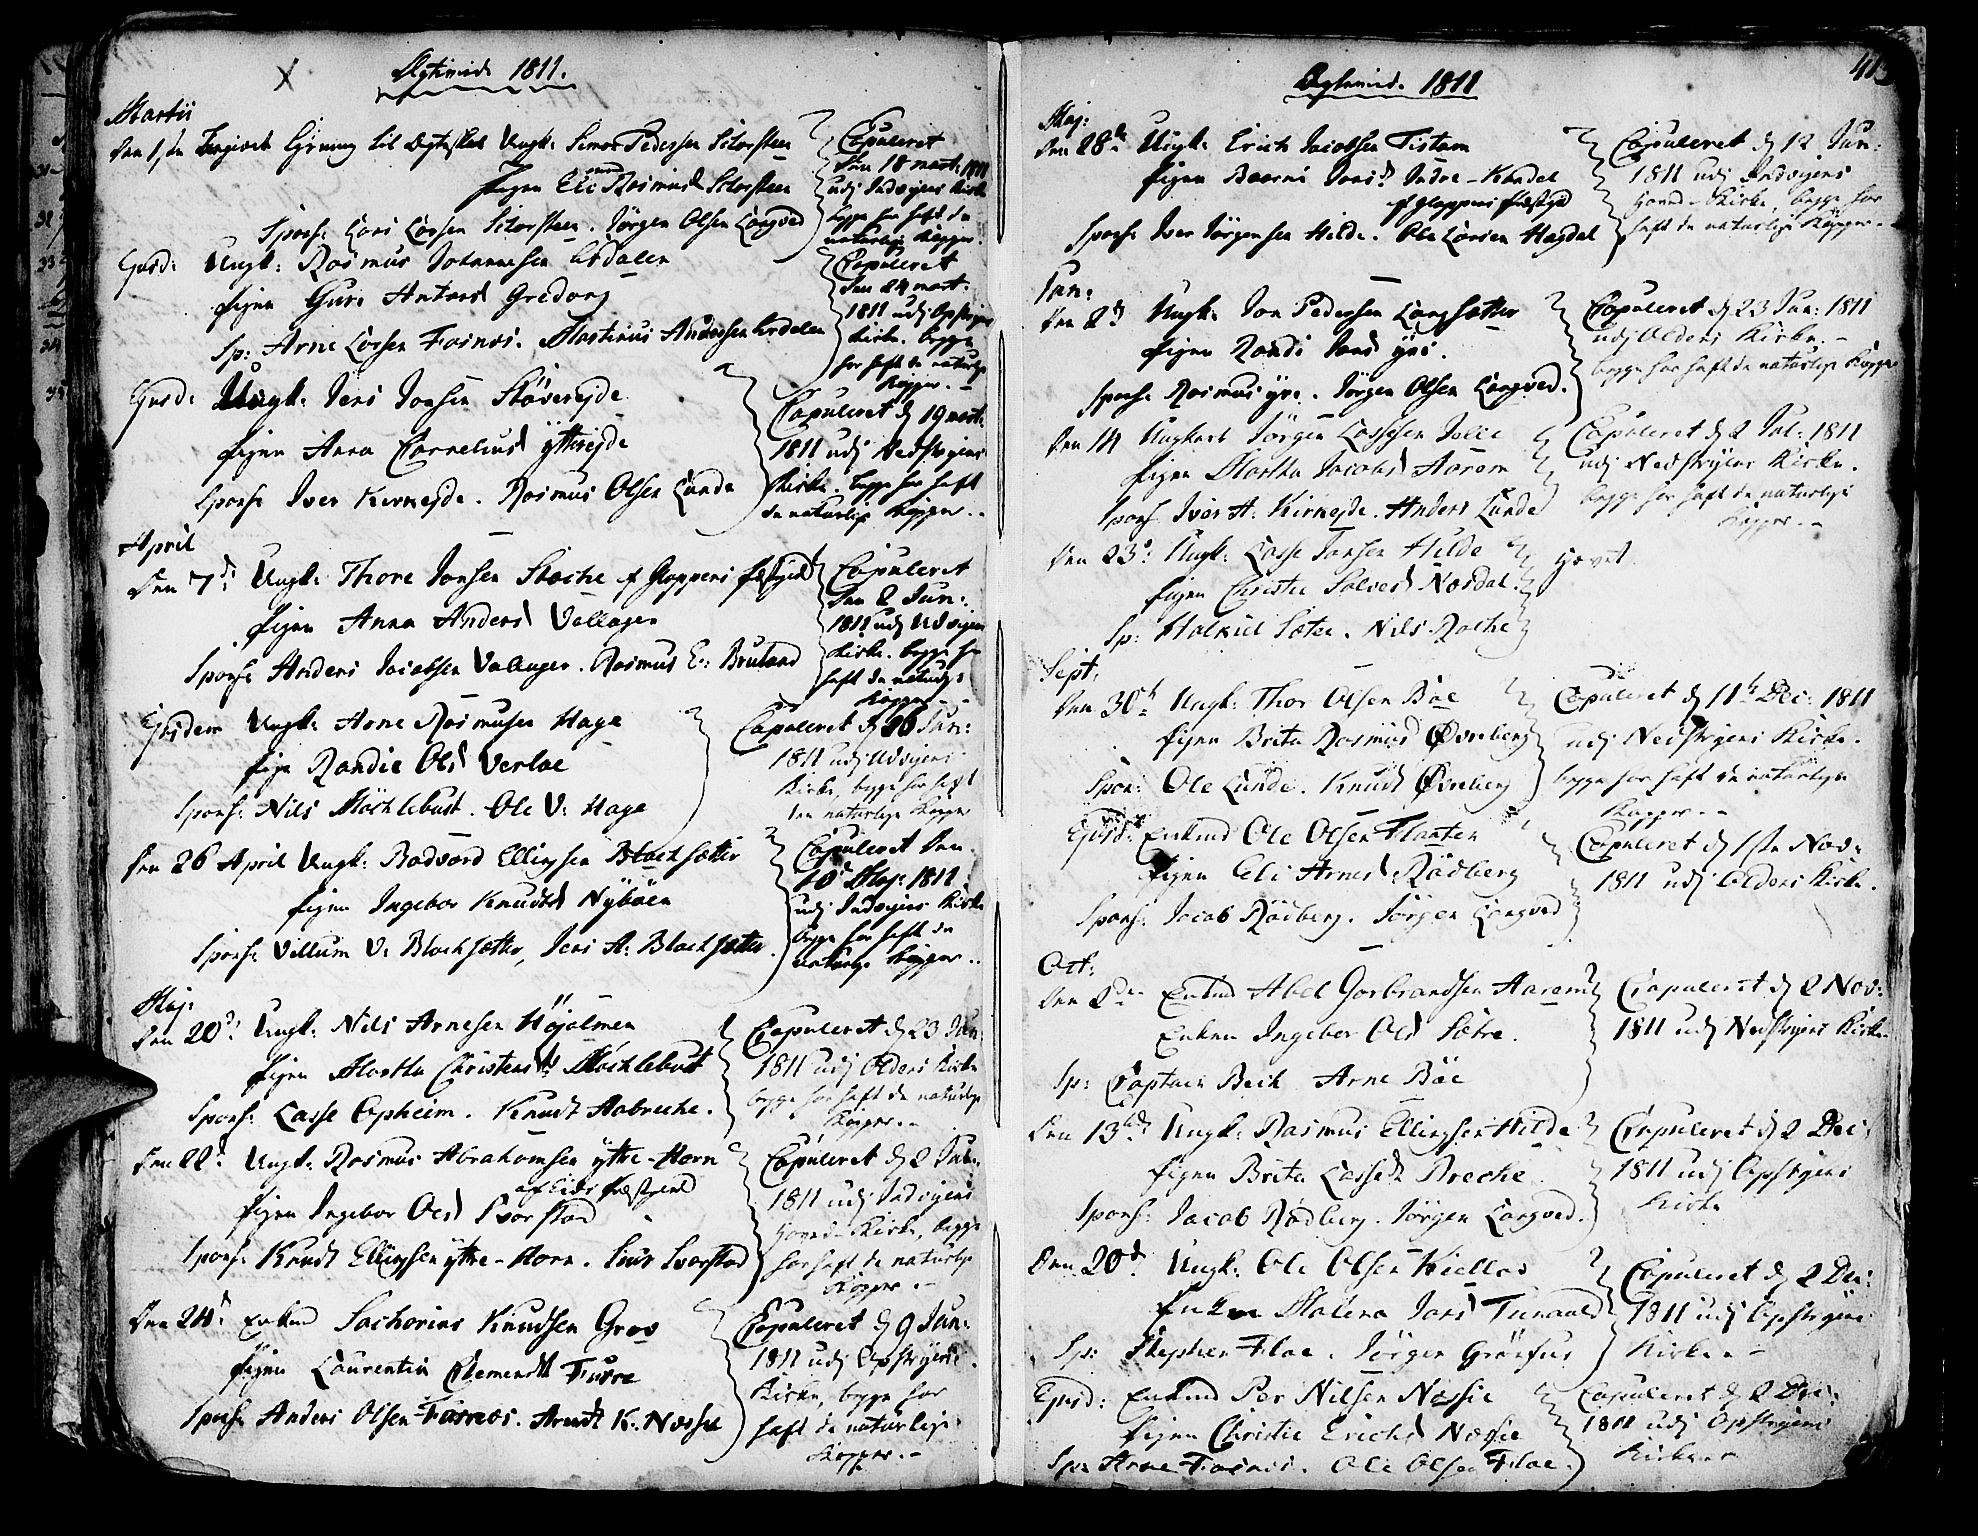 Ægtevied 1811.
Martii
Den 1ste Begiæret til Ægteskab Ungk: Simon Pedersen Storsteen
Pigen Eli Rasmusd Storsteen
Spons: Lars Larsen Storsteen. Jørgen Olsen Langved
Copuleret
den 18 mart: 1811
udj Indvigens Kirke
begge har haft de
naturlige Kopper.
Ejusd: Ungk: Rasmus Johannesen Erdalen
Pigen Guri Antonsd Gredung
Sp: Arne Larsen Fosnæs. Martinus Andersen Erdalen
Copuleret
den 24 mart:
1811 udj Opstryns
Kirke. begge
har haft de naturlige
Kopper.
Ejusd: Ungk: Jens Jonsen Støverejde
Pigen Anna Corneliusd ÿttrejde
Spons: Iver Kirkejde. Rasmus Olsen Lunde
Copuleret d 19 mart:
1811 udj Nedstryns
Kirke. begge har haft
de naturlige Kopper..
April
Den 7de: Ungk: Thore Jonsen Stoche af Gloppens Præstegield
Pigen Anna Andersd Vallager
Spons: Anders Jacobsen Vallager. Rasmus E: Bruland
Copuleret
den 2 Jun:
1811 udj Udvigens
Kirke. begge har
haft de naturlige
Kopper
Ejusdem Ungk: Arne Rasmusen Hage
Pige Randie Olsd Verlae
Spons: Nils Møchlebust. Ole V: Hage
Copuleret d 16 Jun:
1811 udj Udvigens
Kirke, begge har haft
den naturlige Kopper
Den 26 April Ungk: Badvard Ellingsen Blachsætter
Pigen Ingebor Knudsd Nÿbøen
Spons: Villum V: Blochsætter, Jens A: Blachsætter
Copuleret den
10de Maj: 1811
udj Indvigens Kirke
begge har haft de
naturlige Kopper..
Maj:
Den 20de: Ungk: Nils Arnesen Højalmen
Pigen Martha Christensd: Møchlebust
Spons: Lasse Opheim. Knudt Aabreche.
Copuleret d 23 Jun:
1811 udj Oldens Kirke
begge har haft de naturlige
Kopper.-
Den 22de: Ungk: Rasmus Abrahamsen ÿttre-Horn
af Eids Præstegield
Pigen Ingebor Olsd Svorstad
Spons: Knudt Ellingsen ÿttre-Horn. Svorstad
Copuleret d 2 Jul:
1811 udj Indvigens
Hoved-Kirke, begge
har haft de naturlige
Kopper.-
Den 24de Enkmd Sacharias Knudsen Grov
Pigen Laurentia Clemendsd Furre
Spons: Anders Olsen Fosnæs. Arendt K: Næssie
Copuleret d 9 Jun:
1811 udj Opstryns
Kirke, begge har
haft de naturlige
Kopper.-
Ægtevied. 1811
Maj:
Den 28de Ungk: Erich Jacobsen Tistam
Pigen Jonsd Indre-Kandal
af Gloppens Præstegd
Spons: Iver Jørgensen Hilde. Ole Larsen Hagdal
Copuleret d 12 Jun:
1811 udj Indvigens
Hoved-Kirke, begge har
haft de naturlige Kopper.-
Jun:
Den 2de Ungk: Jon Pedersen Langsætter
Pigen Randi Jonsd ÿri.
Spons: Rasmus ÿri. Jørgen Olsen Langved.
Copuleret d 23 Jun: 1811
udj Oldens Kirke.-
begge har haft de naturlige Kopper
Den 14 Ungkarl Jørgen Lassesen Jelle
Pigen Martha Jacobsd Aarem
Spons: Iver A: Kirkejde. Anders Lunde
Copuleret d 2 Jul: 1811
udj Nedstryns Kirke.
begge har haft de naturlige
Kopper.-
Den 23de: Ungk: Lasse Jansen Hilde
Pigen Christie Salvesd Nordal.
Sp: Halkiel Sætre. Nils Rache
Hævet
Sept:
Den 30te Ungk: Thor Olsen Bøe
Pigen Brita Rasmusd Øvreberg
Spon: Ole Lunde. Knudt Øvreberg
Copuleret d 11te Dec: 1811
udj Nedstryns Kirke.
begge har haft de naturlige
Kopper.-
Ejusd: Enkmd Ole Olsen Flaaten
Pigen Eli Arnesd Rødberg
Spons: Jacob Rødberg. Jørgen Langved
Copuleret d 1ste Nov:
1811 udj Oldens Kirke.
Oct:
Den 2den Enkmd Abel Gorbrandsen Aarem
Enken Ingebor Olsd Sætre.
Sp: Captain Beck Arne Bøe
Copuleret d 2 Nov:
1811 udj Nedstryns Kirke
Den 13de Ungk: Rasmus Ellingsen Hilde
Pigen Brita Lassesd Breche
Spons: Jacob Rødberg. Jørgen Langved.
Copuleret d 2 Dec:
1811 udj Opstryns
Kirke
Den 20de Ungk: Ole Olsen Kiellas
Enken Malena Jonsd Tunaald
Sp: Stephen Flae. Jørgen Grønfur
Copuleret d 2 Dec:
1811 udj Opstryns
Kirke.-
Ejusd: Enkmd Per Nilsen Næssie
Pigen Christie Erichsd Næssie
Sp: Arne Fosnæs. Ole Olsen Flae.
Copuleret d 2 Dec:
1811 udj Opstryns
Kirke.-